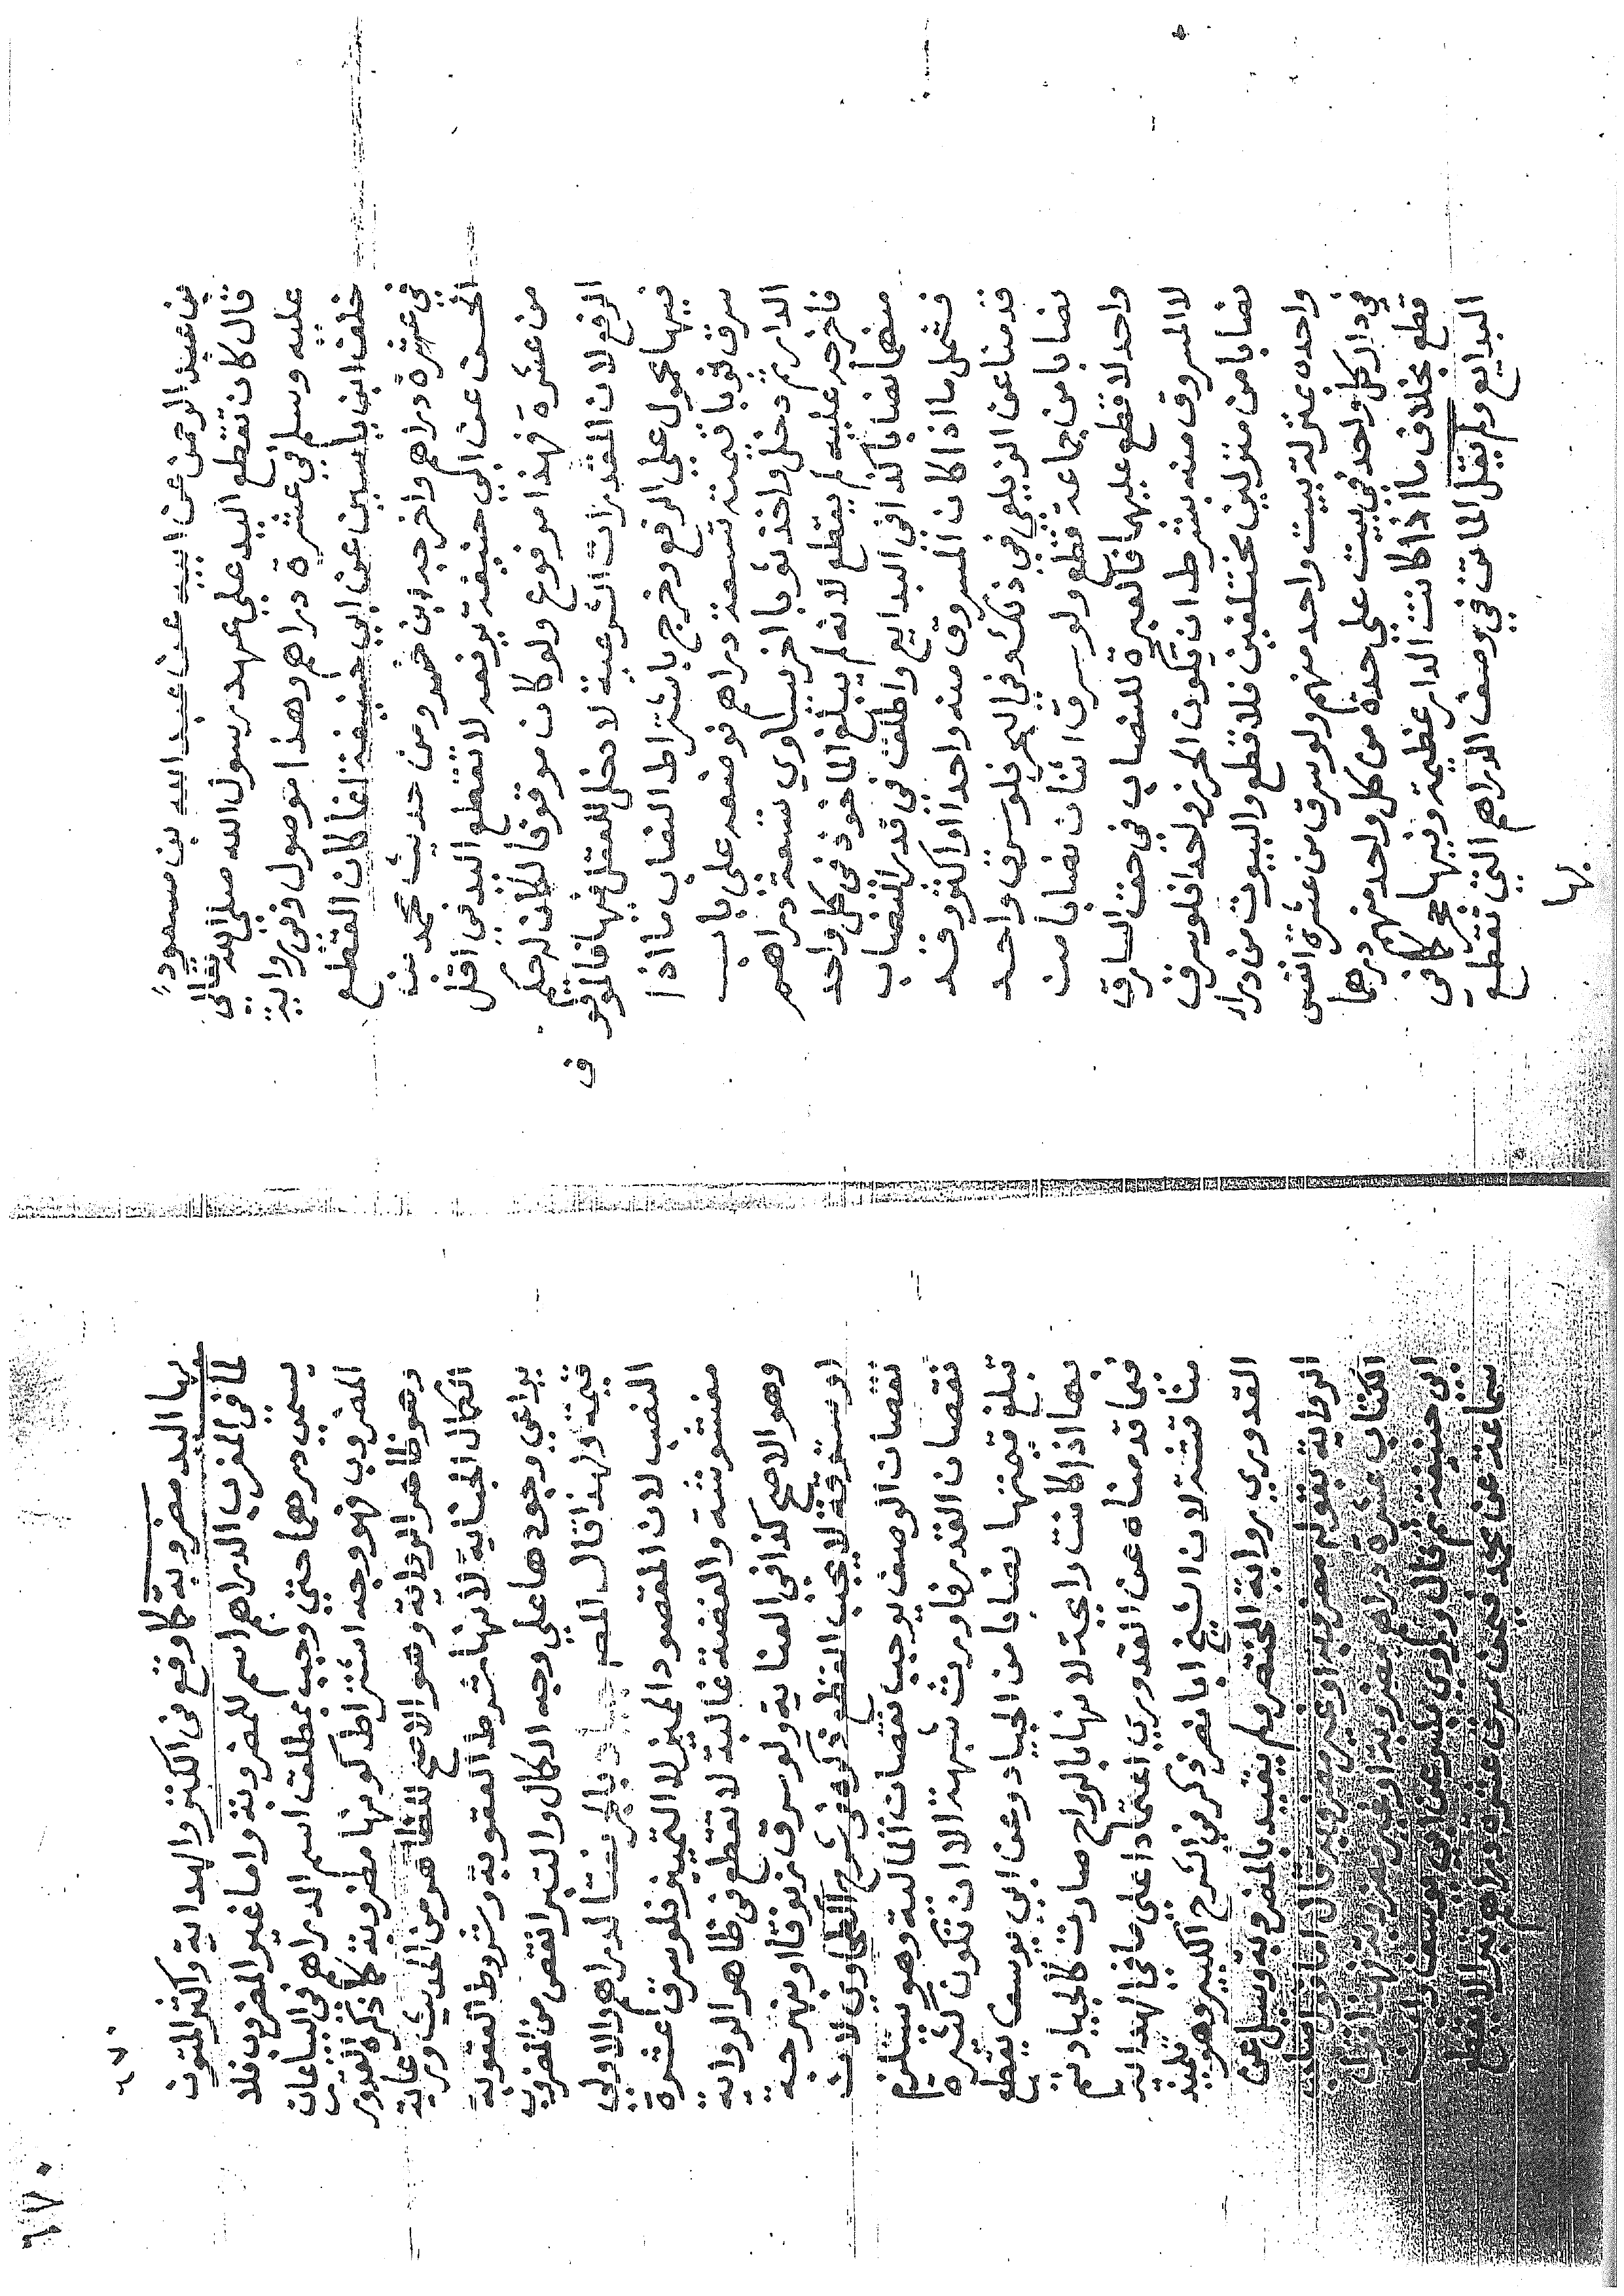 بن عبد الرحمن عن ابيه عن عبد الله بن مسعود
قال كان تقطع اليد علي عهد رسول الله صلي الله تعالى
عليه وسلم في عشرة دراهم وهذا موصول وفي رواية
خلف ابن ياسين عن ابي حنيفة انما كان القطع
في عشرة دراهم واخرجه ابن خسرو من حديث محمد بن
الحسن عن ابي حنيفة يرفعه لا تقطع اليد في اقل
من عشرة فهذا مرفوع ولو كان موقوفا لكان له حكم
الرفع لان المقدرات الشرعية لا دخل للعقل فيها فالموقو
ف
فيها محمول علي الرفع وخرج باشتراط النصاب ما اذا
سرق ثوبا قيمته تسعة دراهم فوضعه علي باب
الدار ثم دخل واخذ ثوبا اخر يساوي تسعة دراهم
فاخرجه عليه لم يقطع لانه لم يبلغ الماخوذ في كل واحد
منهما نصابا كذا في البدايع واطلق في قدر النصاب
فشمل ما اذا كان المسروق منه واحدا او اكثر وقد
قدمنا عن الزيلعي في ذلك وفي البحر فلو سرق واحد
نصابا من جماعة قطع ولو سرق اثنان نصابا من
واحد لا قطع عليهما فالعبرة للنصاب في حق السارق
لا المسروق منه بشرط ان يكون الحرز واحدا فلو سرق
نصابا من منزلين مختلفين فلا قطع والبيوت من دار
واحدة بمنزلة بيت واحد منهم ولو سرق من عشرة انفس
في دار كل واحد في بيت علي حدة من كل واحد منهم درهما
قطع بخلاف ما اذا كانت الدار عظيمة وفيها حجر كما في
البدايع ولم يقل الماتن في وصف الدراهم التي تقطع
بها
٦٧٠
بها اليد مضروبة كما وقع في الكنز والهداية واكثر المتون
لما في المغرب الدراهم اسم للمضروبة واما غير المضروب فلا
يسمي درهما حتي وجب بمطلق اسم الدراهم في البياعات
المضروب فهو وجه اشتراط كونها مضروبة كما ذكره القدوري
وهو ظاهر الرواية وهو الاصح للظاهر من الحديث ورعاية
الكمال الجناية لانها شرط العقوبة وشروط العقوبة
يراعي وجودها علي وجه الكمال والتبر انقص من المضروب
قيمة ولهذا قال المصـ جياد بالجر نعتا لدراهم والاولي
النصب لان المقصود المميز لا التمييز فلو سرق عشرة
مغشوشة والفضة غالبة لا تقطع في ظاهر الرواية
وهو الاصح كذا في العناية ولو سرق زيوفا او نبهرجة
او ستوقة لا يجب القطع ذكره في شرح الطحاوي لان
نقصان الوصف يوجب نقصان المالية وهو يستلزم
نقصان القدر فاورث شبهة الا ان تكون كثيرة
تبلغ قيمتها نصابا من الجياد وعن ابي يوسف يقطع
بها اذا كانت رايجة لانها بالرواج صارت كالجياد ثم
فيما قدمناه عن القدوري اعتمادا علي ما في الهداية
مناقشة لان الشيخ ابا نصر ذكر في الشرح الكبير وهو تلميذ
القدوري رواية المختصر ولم يقيد بالمضروبة وسيل عن
الرواية بقوله مضروبة او غير مضروبة فقال اما
الكتاب عشرة دراهم مضروبة او غير مضروبة فهذا قول
ابي حنيفة ثم قال وروي بشر عن ابي يوسف
سماعة عن محمد فيمن سرق عشرة دراهم تبرا لا يقطع